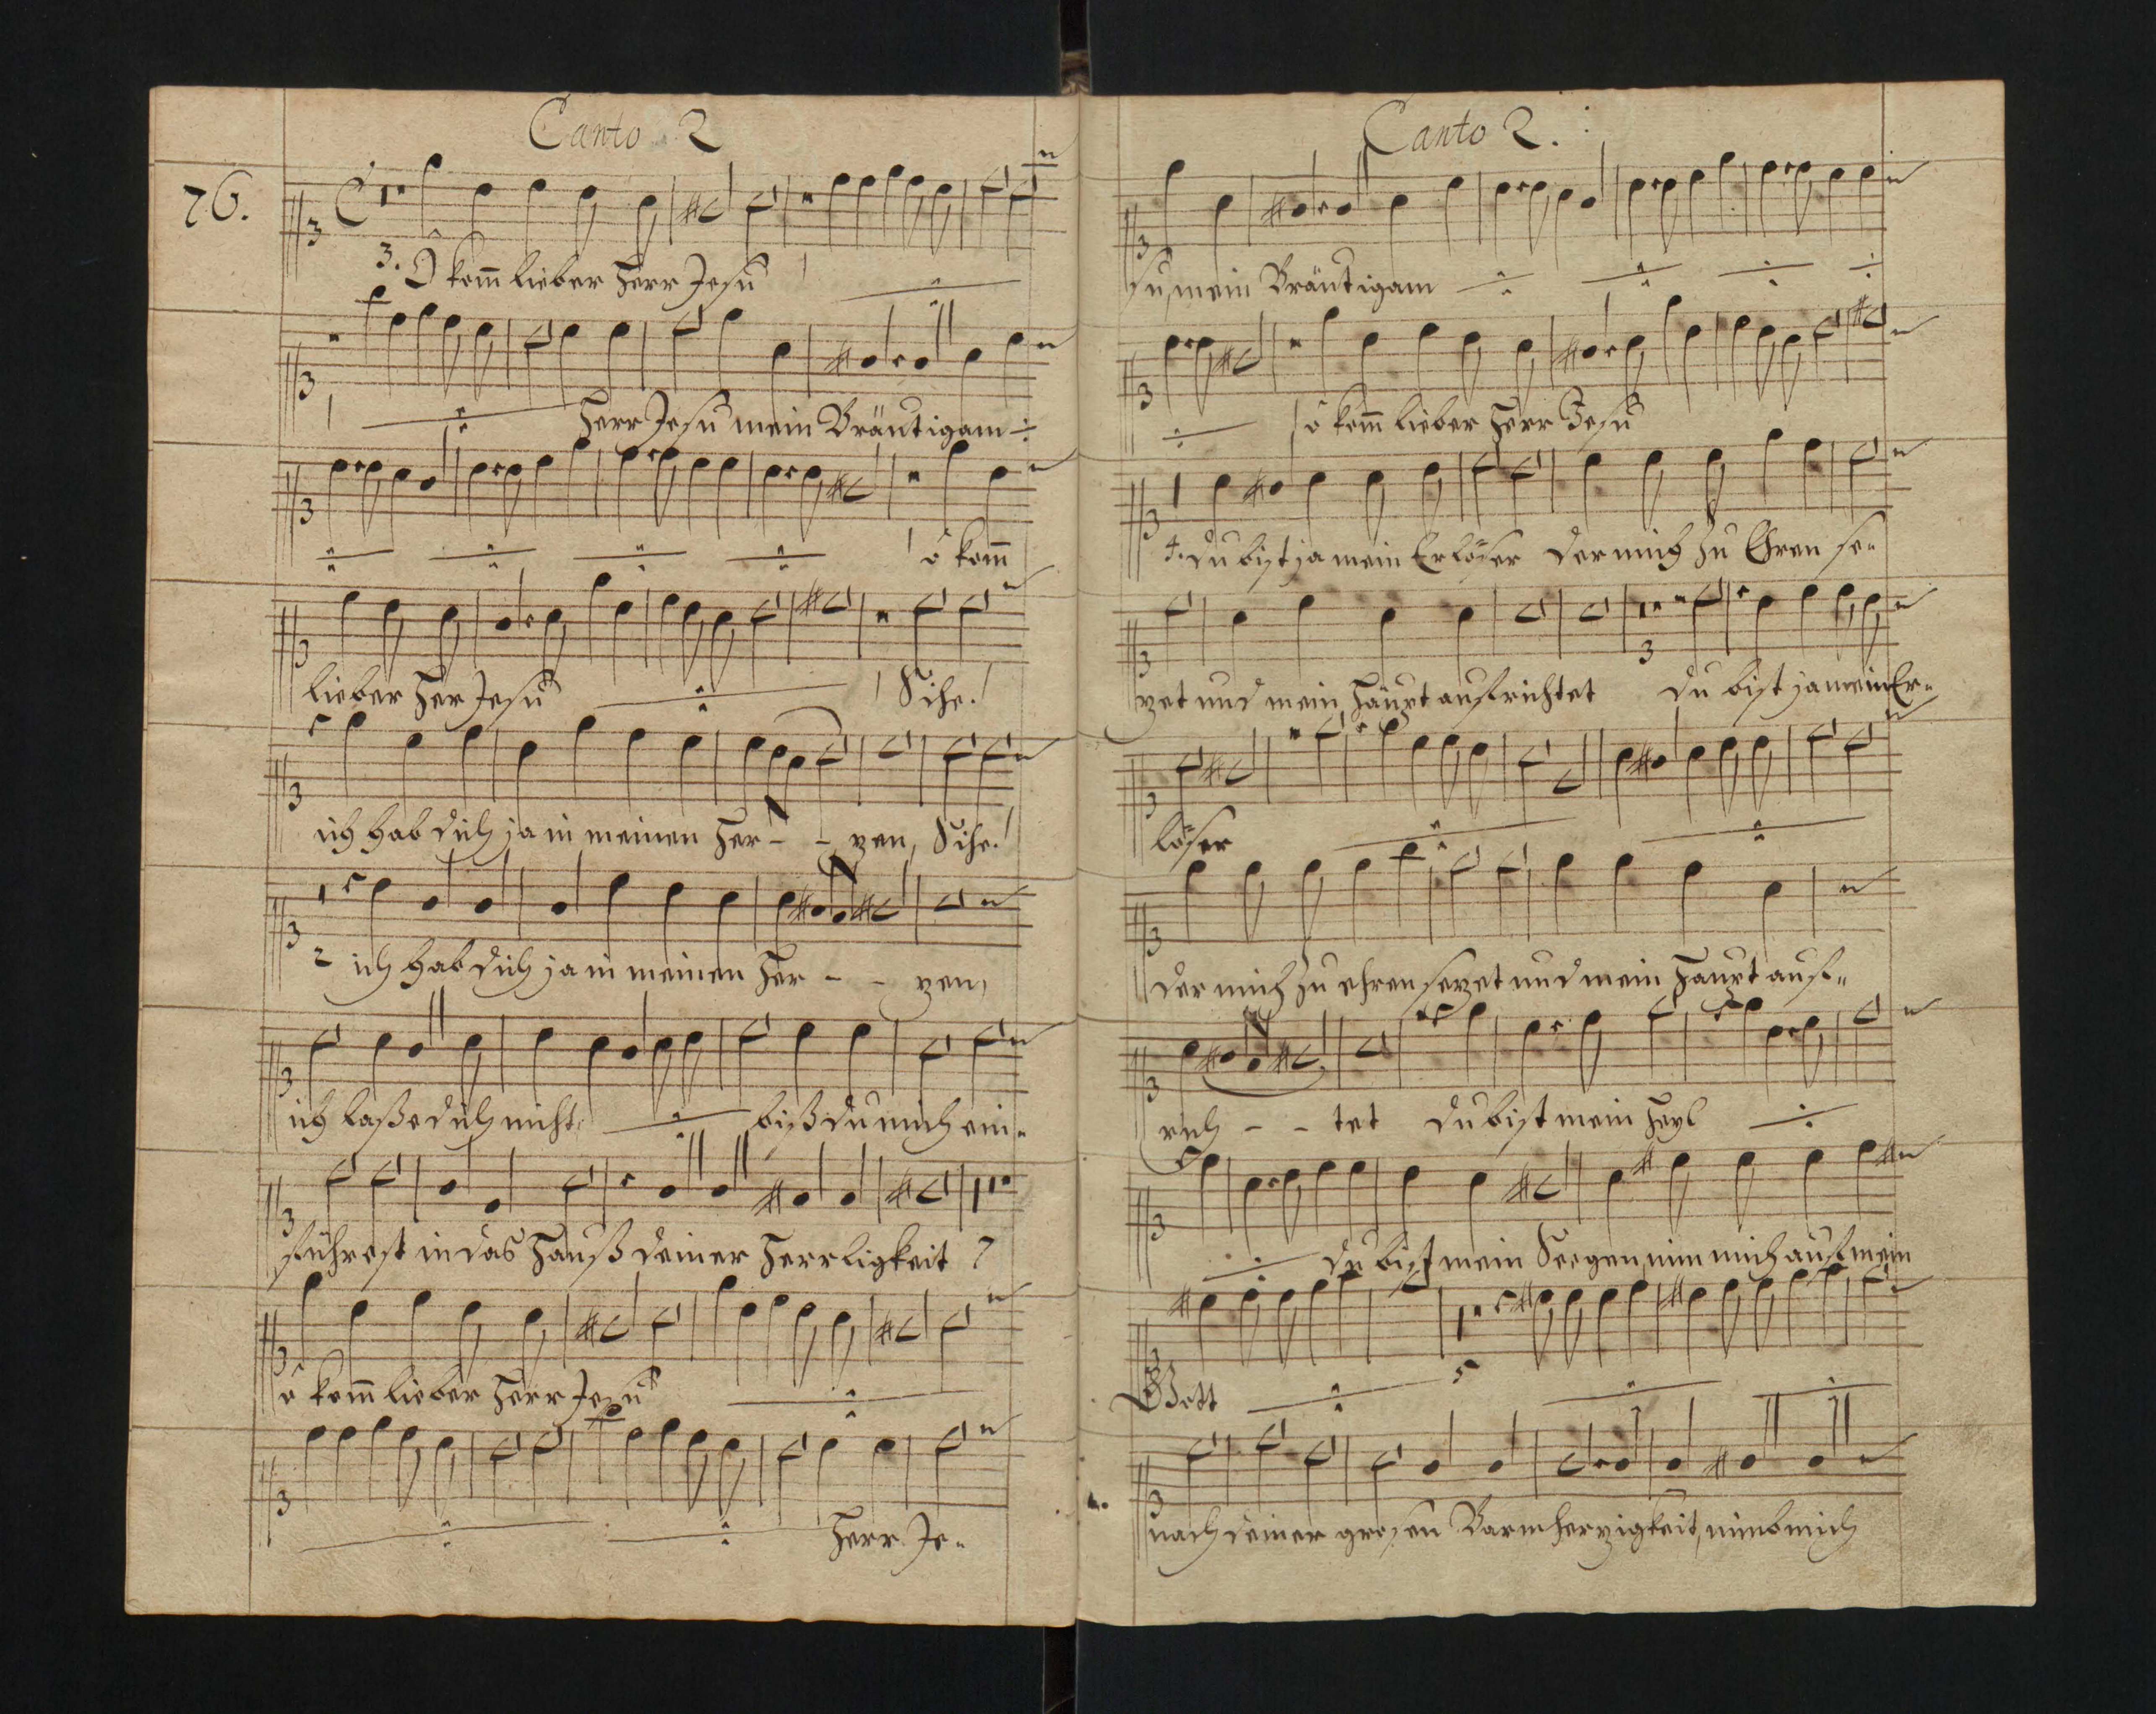 Canto 2
76.
3. O kom̄ lieber Herr Jesu
Herr Jesu mein Bräutigam
ô kom̄
lieber Her Jesu Sihe!
ich hab dich ja in meinen Her - - zen, Sihe!
ich hab dich ja in meinen Her - - zen,
ich laße dich nicht, biß du mich ein-
führest in das Hauß deiner Herrligkeit
ô kom̄ lieber Herr Jesu
Herr Je-
Canto 2.
su, mein Bräutigam
ô kom̄ lieber Herr Jesu
4. du bist ja mein Erlöser der mich zu Ehren se-
zet und mein Häupt aufrichtet du bist ja mein Er-
löser
der mich zu ehren sezet und mein Haupt auf-
rich - - tet du bist mein Heyl
du bist mein Seegen nim mich auf mein
Gott
nach deiner grosen Barmherzigkeit, nimb mich